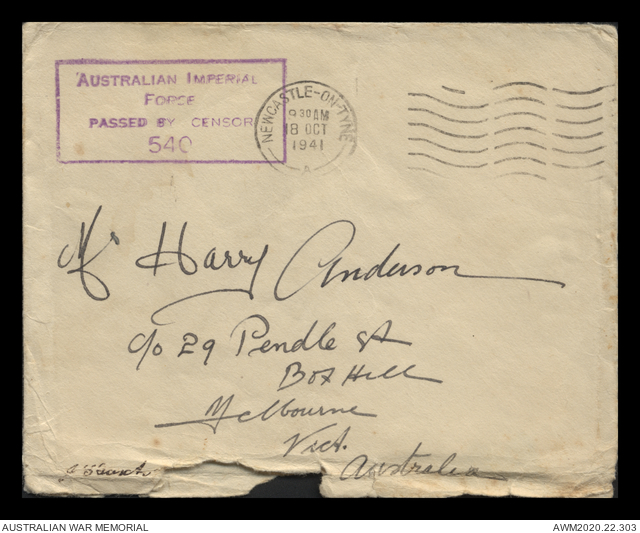 AUSTRALIAN IMPERIAL
FORCE
PASSED BY CENSOR
540
NEWCASTLE-ON-TYNE
9 30 AM
18 OCT
1941
A
Mr Harry Anderson
c/o 29 Pendle St
Box Hill
Melbourne
Vict.
Australia
AUSTRALIAN WAR MEMORIAL
AWM2020.22.303